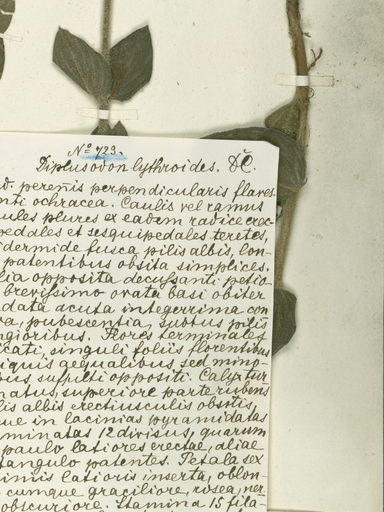 Nº 723.
Diplusodon lythroides. DC.
d. perennis perpendicularis flaves
enti ochracea. Caulis vel ramus
ules plures ex eadem radice erec
pedales et sesquipedales teretes,
idermide fusca pilis albis, lon-
patentibus obsita simplices.
lia opposita decussanti petio
brevissimo ovata basi obiter
data acuta integerrima con
va, pubescentia, subtus pilis
ngioribus. Flores terminales
cati, singuli foliis florentibus
iquis aequalibus sed mino-
bus suffulti oppositi. Calyx tur
natus, superiore parte rubens
lis albis erectiusculis obsitis,
ue in lacinias pyramidatas
minatas 12 divisus, quarum
paulo latiores erectae, aliae
tangulo patentes. Petala sex
imis latioris inserta, oblon-
cumque graciliore, rosea, ner
obscuriore. Stamina 15 fila-